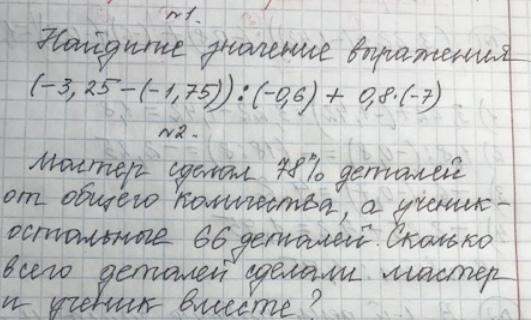 №1.
Найдите значение выражения
(-3,25-(-1,75)):(-0,6) + 0,8·(-7)
№2.
Мастер сделал 78% деталей
от общего количества, а ученик-
остальные 66 деталей. Сколько
всего деталей сделали мастер
и ученик вместе?